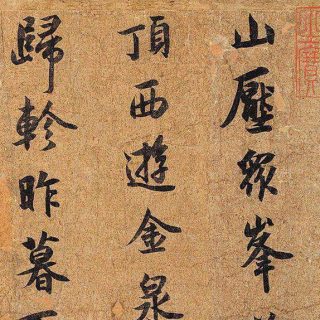 山壓眾峯
頂西遊金泉
歸軫昨暮